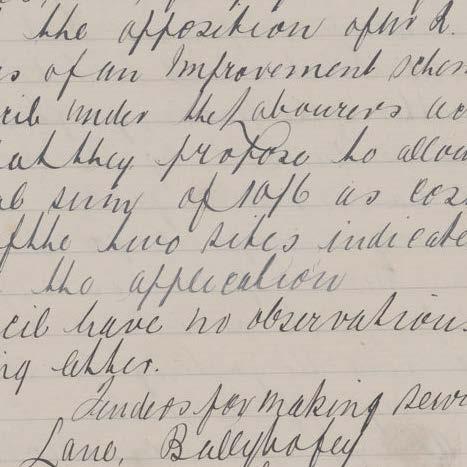 the opposition of Mr R.
es of an Improvement schem
cil under the Labourers ac
hat they propose to allow
al sum of 10/6 as cos
of the two sites indicate
the application
cil have no observations
ng either.
Tenders for making sewe
Lane, Ballybofey